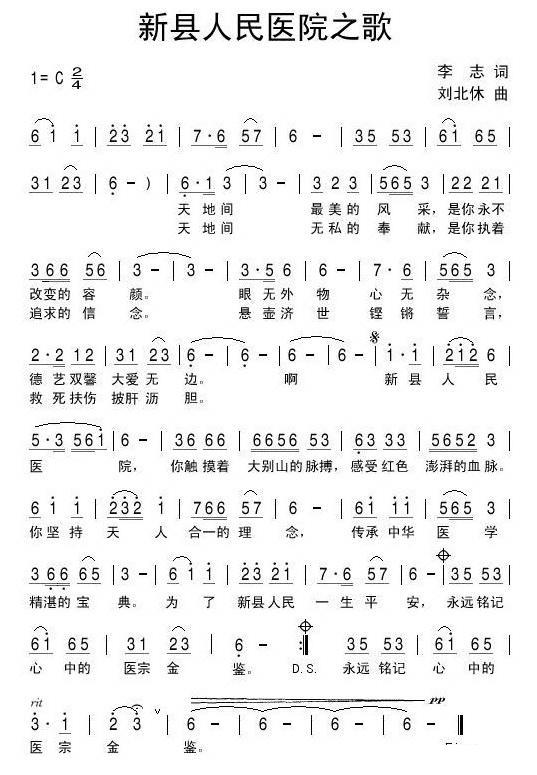 新县人民医院之歌
1= C 2/4
李 志 词
刘北休 曲
6 1 1 | 23 21 | 7·6 57 | 6 – | 35 53 | 61 65 |
31 23 | 6 – ) | 6·1 3 | 3 – | 3 2 3 | 565 3 | 22 21 |
天 地 间 最 美 的 风 采，是你永不
天 地 间 无 私 的 奉 献，是你执着
366 56 | 3 – | 3 – | 3·5 6 | 6 – | 7·6 | 565 3 |
改变的 容 颜。 眼 无 外 物 心 无 杂 念，
追求的 信 念。 悬 壶 济 世 铿 锵 誓 言，
2·2 12 | 31 23 | 6 – | 6 – | 6 – | 1·1 | 212 6 |
德 艺 双馨 大爱 无 边。 啊 新 县 人 民
救 死 扶伤 披肝 沥 胆。
5·3 561 | 6 – | 36 66 | 6656 53 | 63 33 | 5652 3 |
医 院， 你触 摸着 大别山的 脉搏，感受 红色 澎湃的血 脉。
6 1 1 | 232 2 | 766 57 | 6 – | 61 11 | 565 3 |
你 坚 持 天 人 合一的 理 念， 传承 中华 医 学
366 65 | 3 – | 6 1 1 | 23 21 | 7·6 57 | 6 – | 35 53 |
精湛的 宝 典。 为 了 新县 人民 一 生 平 安，永远 铭记
61 65 | 31 23 | 6 – :| 35 53 | 61 65 |
心 中的 医宗 金 鉴。 D.S. 永远 铭记 心 中的
rit pp
3·1 | 2 3 | 6 – | 6 – | 6 – ‖
医 宗 金 鉴。